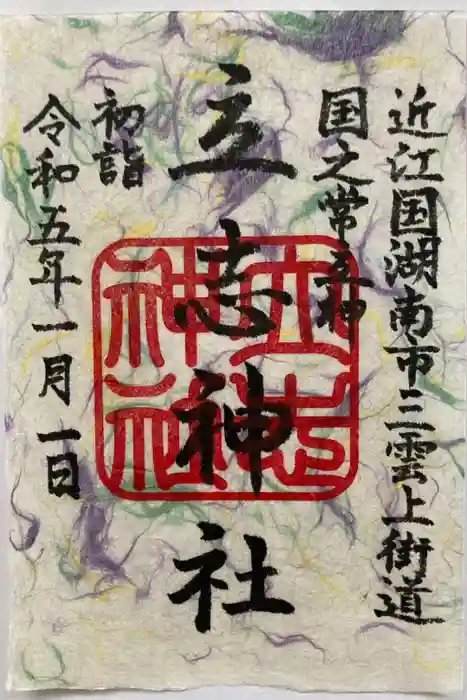 近江国湖南市三雲上街道
国之常立神
立志神社
立志神社
初詣
令和五年一月一日